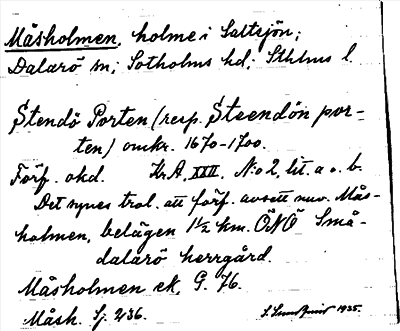 Måsholmen, holme i Saltsjön;
Dalarö sn; Sotholms hd; Sthlms l.
Stendö Porten (resp. Steendön por-
ten) omkr. 1670-1700.
Förf. okd. Kr.A, XXII, N:o 2, lit. a o. b.
Det synes trol. att förf. avsett nuv. Mås-
holmen, belägen 1½ km. ÖNÖ Små-
dalarö herrgård.
Måsholmen ek. G. 76.
Måsh. Sj. 236.
1935.